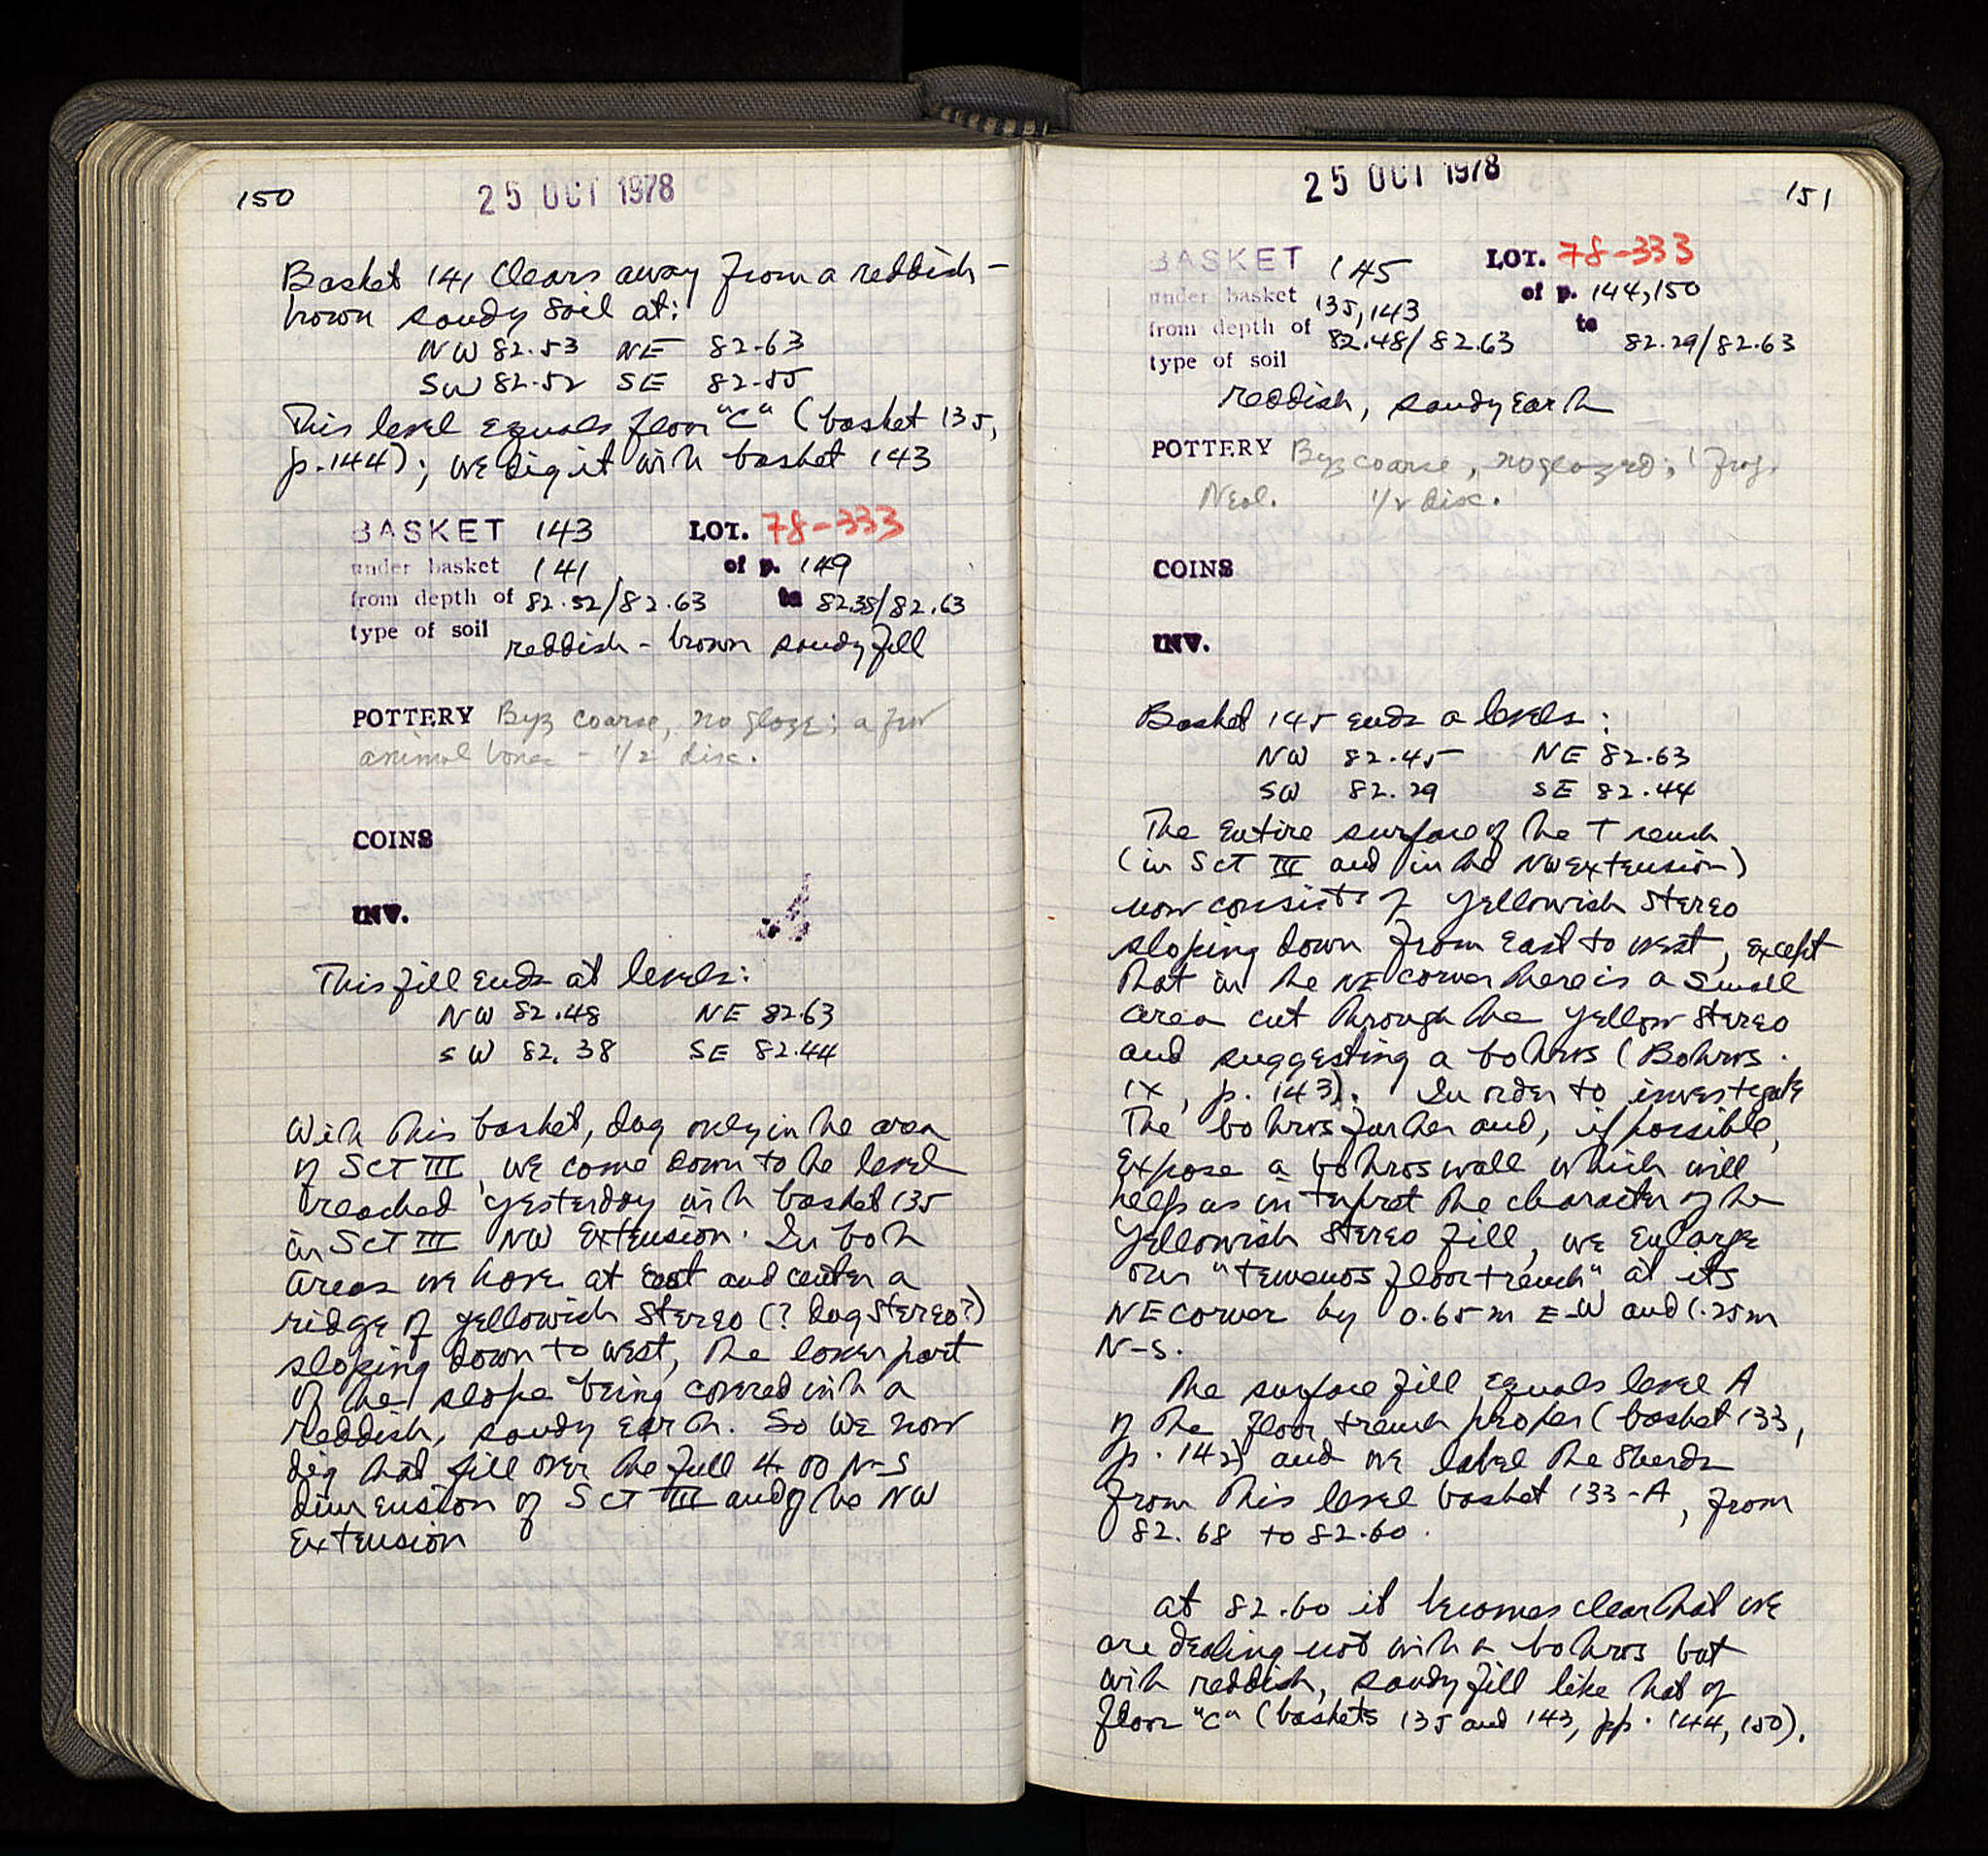 150
25 OCT 1978
Basket 141 clears away from a reddish-
brown sandy soil at:
NW 82.53 NE 82.63
SW 82.52 SE 82.55
This level equals floor "C" (basket 135,
p. 144); we dig it with basket 143
BASKET 143 LOT. 78-333
under basket 141 of p. 149
from depth of 82.52/82.63 to 82.38/82.63
type of soil reddish-brown sandy fill
POTTERY Byz coarse, no glaze; a few
animal bones - 1/2 disc.
COINS
INV.
This fill ends at levels:
NW 82.48 NE 82.63
SW 82.38 SE 82.44
With this basket, dug only in the area
of SCT III, we come down to the level
reached yesterday with basket 135
in SCT III NW Extension. In both
areas we have at east and center a
ridge of yellowish stereo (? dug stereo?)
sloping down to west, the lower part
of the slope being covered with a
reddish, sandy earth. So we now
dig that fill over the full 4.00 N-S
dimension of SCT III and of the NW
Extension
25 OCT 1978
151
BASKET 145 LOT. 78-333
under basket 135, 143 of p. 144, 150
from depth of 82.48/82.63 to 82.29/82.63
type of soil
reddish, sandy earth
POTTERY Byz coarse, no glazed; 1 frag.
Neol. 1/2 disc.
COINS
INV.
Basket 145 ends a levels:
NW 82.45 NE 82.63
SW 82.29 SE 82.44
The entire surface of the Trench
(in SCT III and in the NW Extension)
now consists of yellowish stereo
sloping down from east to west, except
that in the NE corner there is a small
area cut through the yellow stereo
and suggesting a bothros (Bothros
IX, p. 143). In order to investigate
the bothros further and, if possible,
expose a bothros wall which will
help us interpret the character of the
yellowish stereo fill, we enlarge
our "temenos floor trench" at its
NE corner by 0.65m E-W and 1.25m
N-S.
The surface fill equals level A
of the floor trench proper (basket 133,
p. 142) and we label the sherds
from this level basket 133-A, from
82.68 to 82.60.
at 82.60 it becomes clear that we
are dealing not with a bothros but
with reddish, sandy fill like that of
floor "C" (baskets 135 and 143, pp. 144, 150).